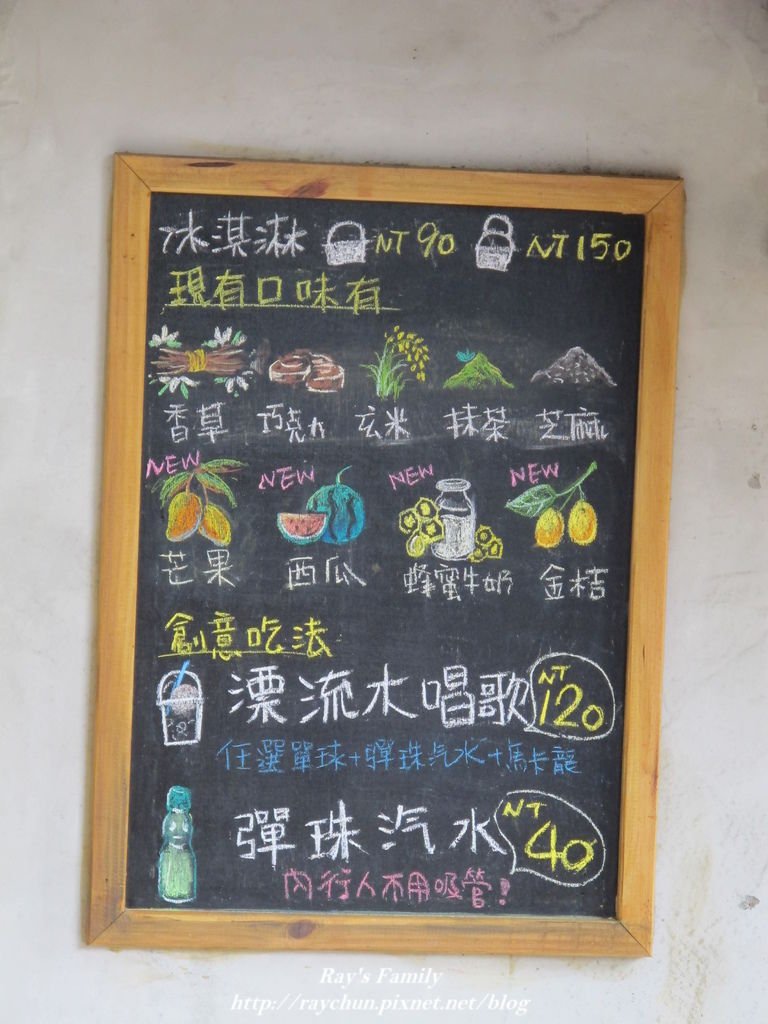 冰淇淋 NT 90 NT 150
現有口味有
香草 巧克力 玄米 抹茶 芝麻
NEW NEW NEW NEW
芒果 西瓜 蜂蜜牛奶 金桔
創意吃法
漂流水唱歌 NT 120
任選單球+彈珠汽水+馬卡龍
彈珠汽水 NT 40
內行人不用吸管!
Ray's Family
http://raychun.pixnet.net/blog